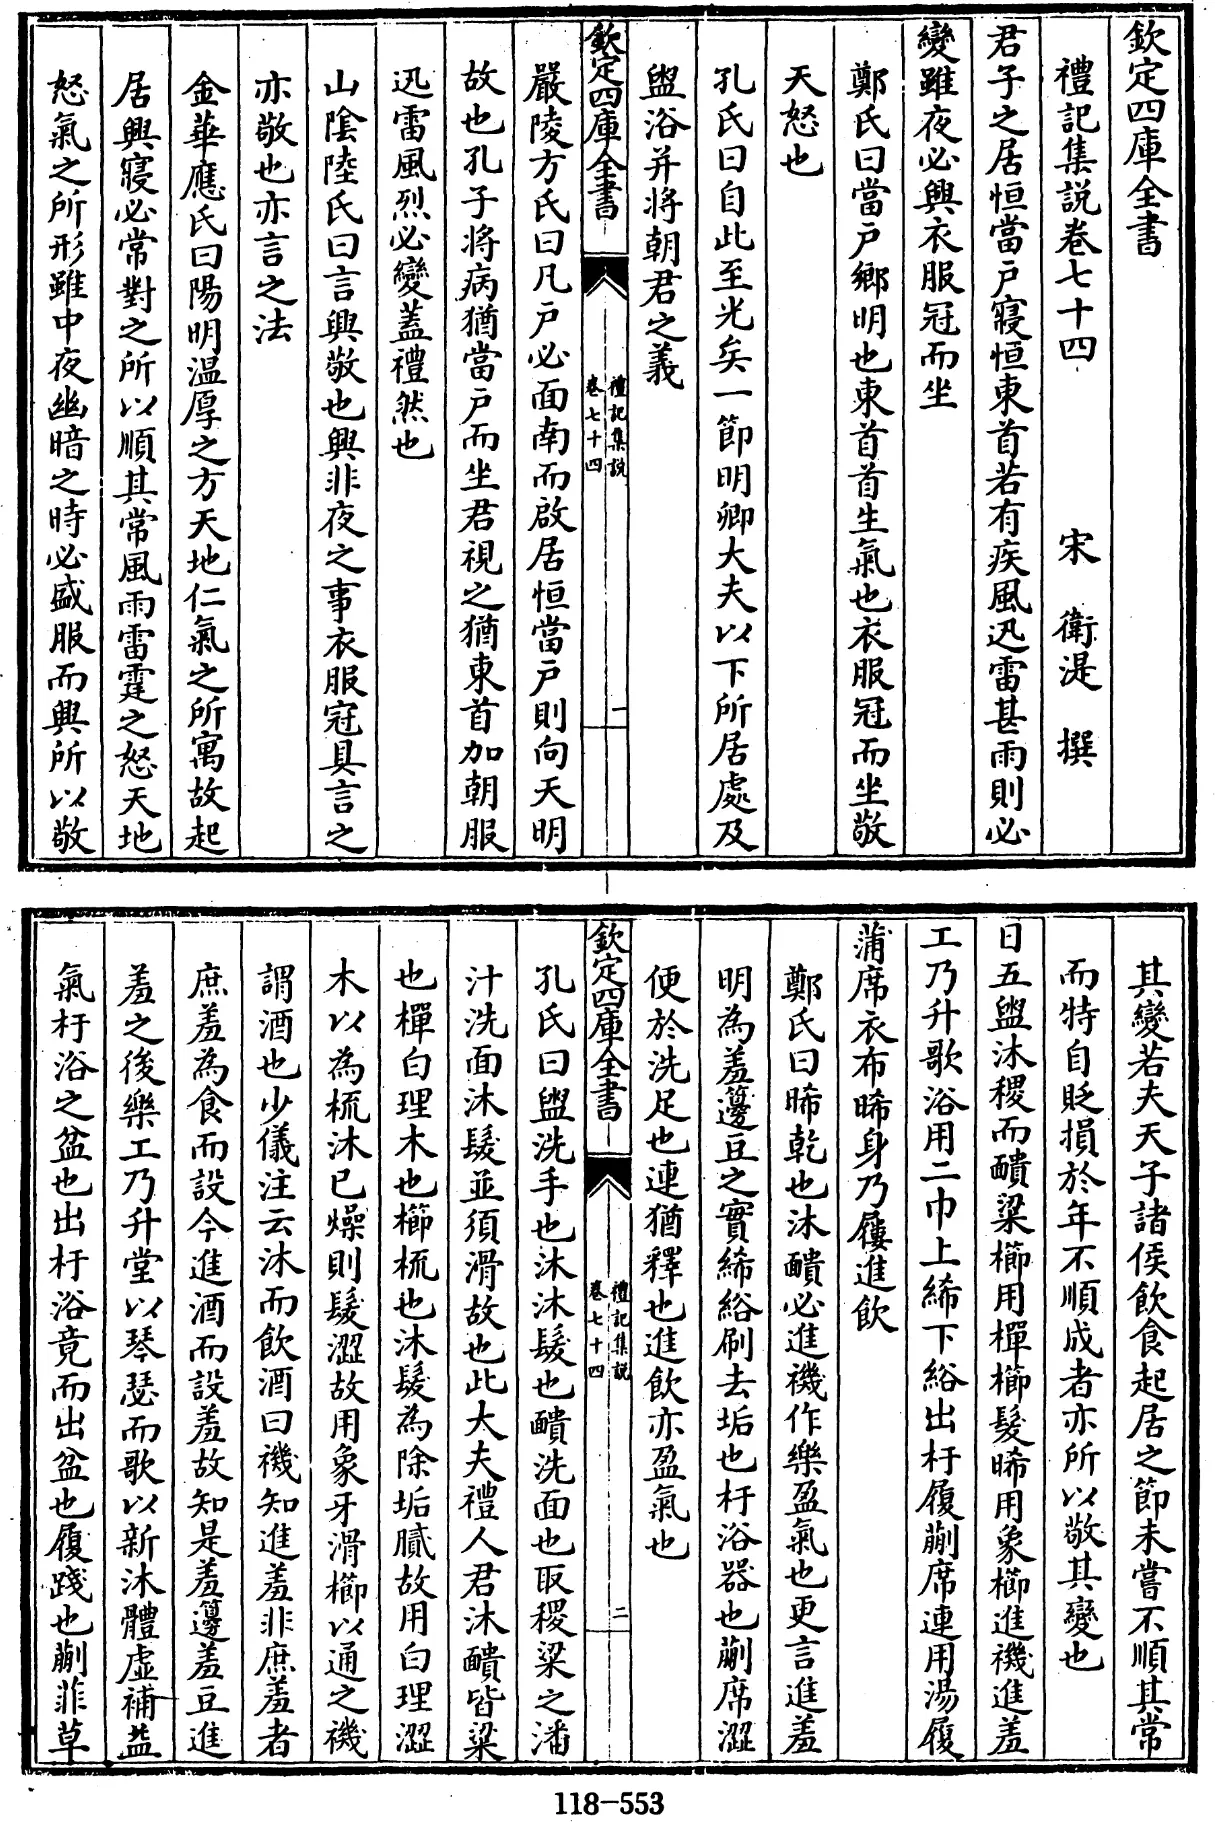 欽定四庫全書
禮記集說卷七十四　宋　衛湜　撰
君子之居恒當户寢恒東首若有疾風迅雷甚雨則必
變雖夜必興衣服冠而坐
鄭氏曰當户鄉明也東首首生氣也衣服冠而坐敬
天怒也
孔氏曰自此至光矣一節明卿大夫以下所居處及
盥浴并將朝君之義
欽定四庫全書
禮記集說
卷七十四
一
嚴陵方氏曰凡户必面南而啟居恒當户則向天明
故也孔子將病猶當户而坐君視之猶東首加朝服
迅雷風烈必變蓋禮然也
山隂陸氏曰言興敬也興非夜之事衣服冠具言之
亦敬也亦言之法
金華應氏曰陽明温厚之方天地仁氣之所寓故起
居興寢必常對之所以順其常風雨雷霆之怒天地
怒氣之所形雖中夜幽暗之時必盛服而興所以敬
其變若夫天子諸侯飲食起居之節未嘗不順其常
而特自貶損於年不順成者亦所以敬其變也
日五盥沐稷而靧粱櫛用樿櫛髮晞用象櫛進禨進羞
工乃升歌浴用二巾上絺下綌出杅履蒯席連用湯履
蒲席衣布晞身乃屨進飲
鄭氏曰晞乾也沐靧必進禨作樂盈氣也更言進羞
明為羞籩豆之實絺綌刷去垢也杅浴器也蒯席澀
便於洗足也連猶釋也進飲亦盈氣也
欽定四庫全書
禮記集說
卷七十四
二
孔氏曰盥洗手也沐沐髮也靧洗面也取稷粱之潘
汁洗面沐髮並須滑故也此大夫禮人君沐靧皆粱
也樿白理木也櫛梳也沐髮為除垢膩故用白理澀
木以為梳沐已燥則髮澀故用象牙滑櫛以通之禨
謂酒也少儀注云沐而飲酒曰禨知進羞非庶羞者
庶羞為食而設今進酒而設羞故知是羞籩羞豆進
羞之後樂工乃升堂以琴瑟而歌以新沐體虛補益
氣杅浴之盆也出杅浴竟而出盆也履踐也蒯菲草
118-553